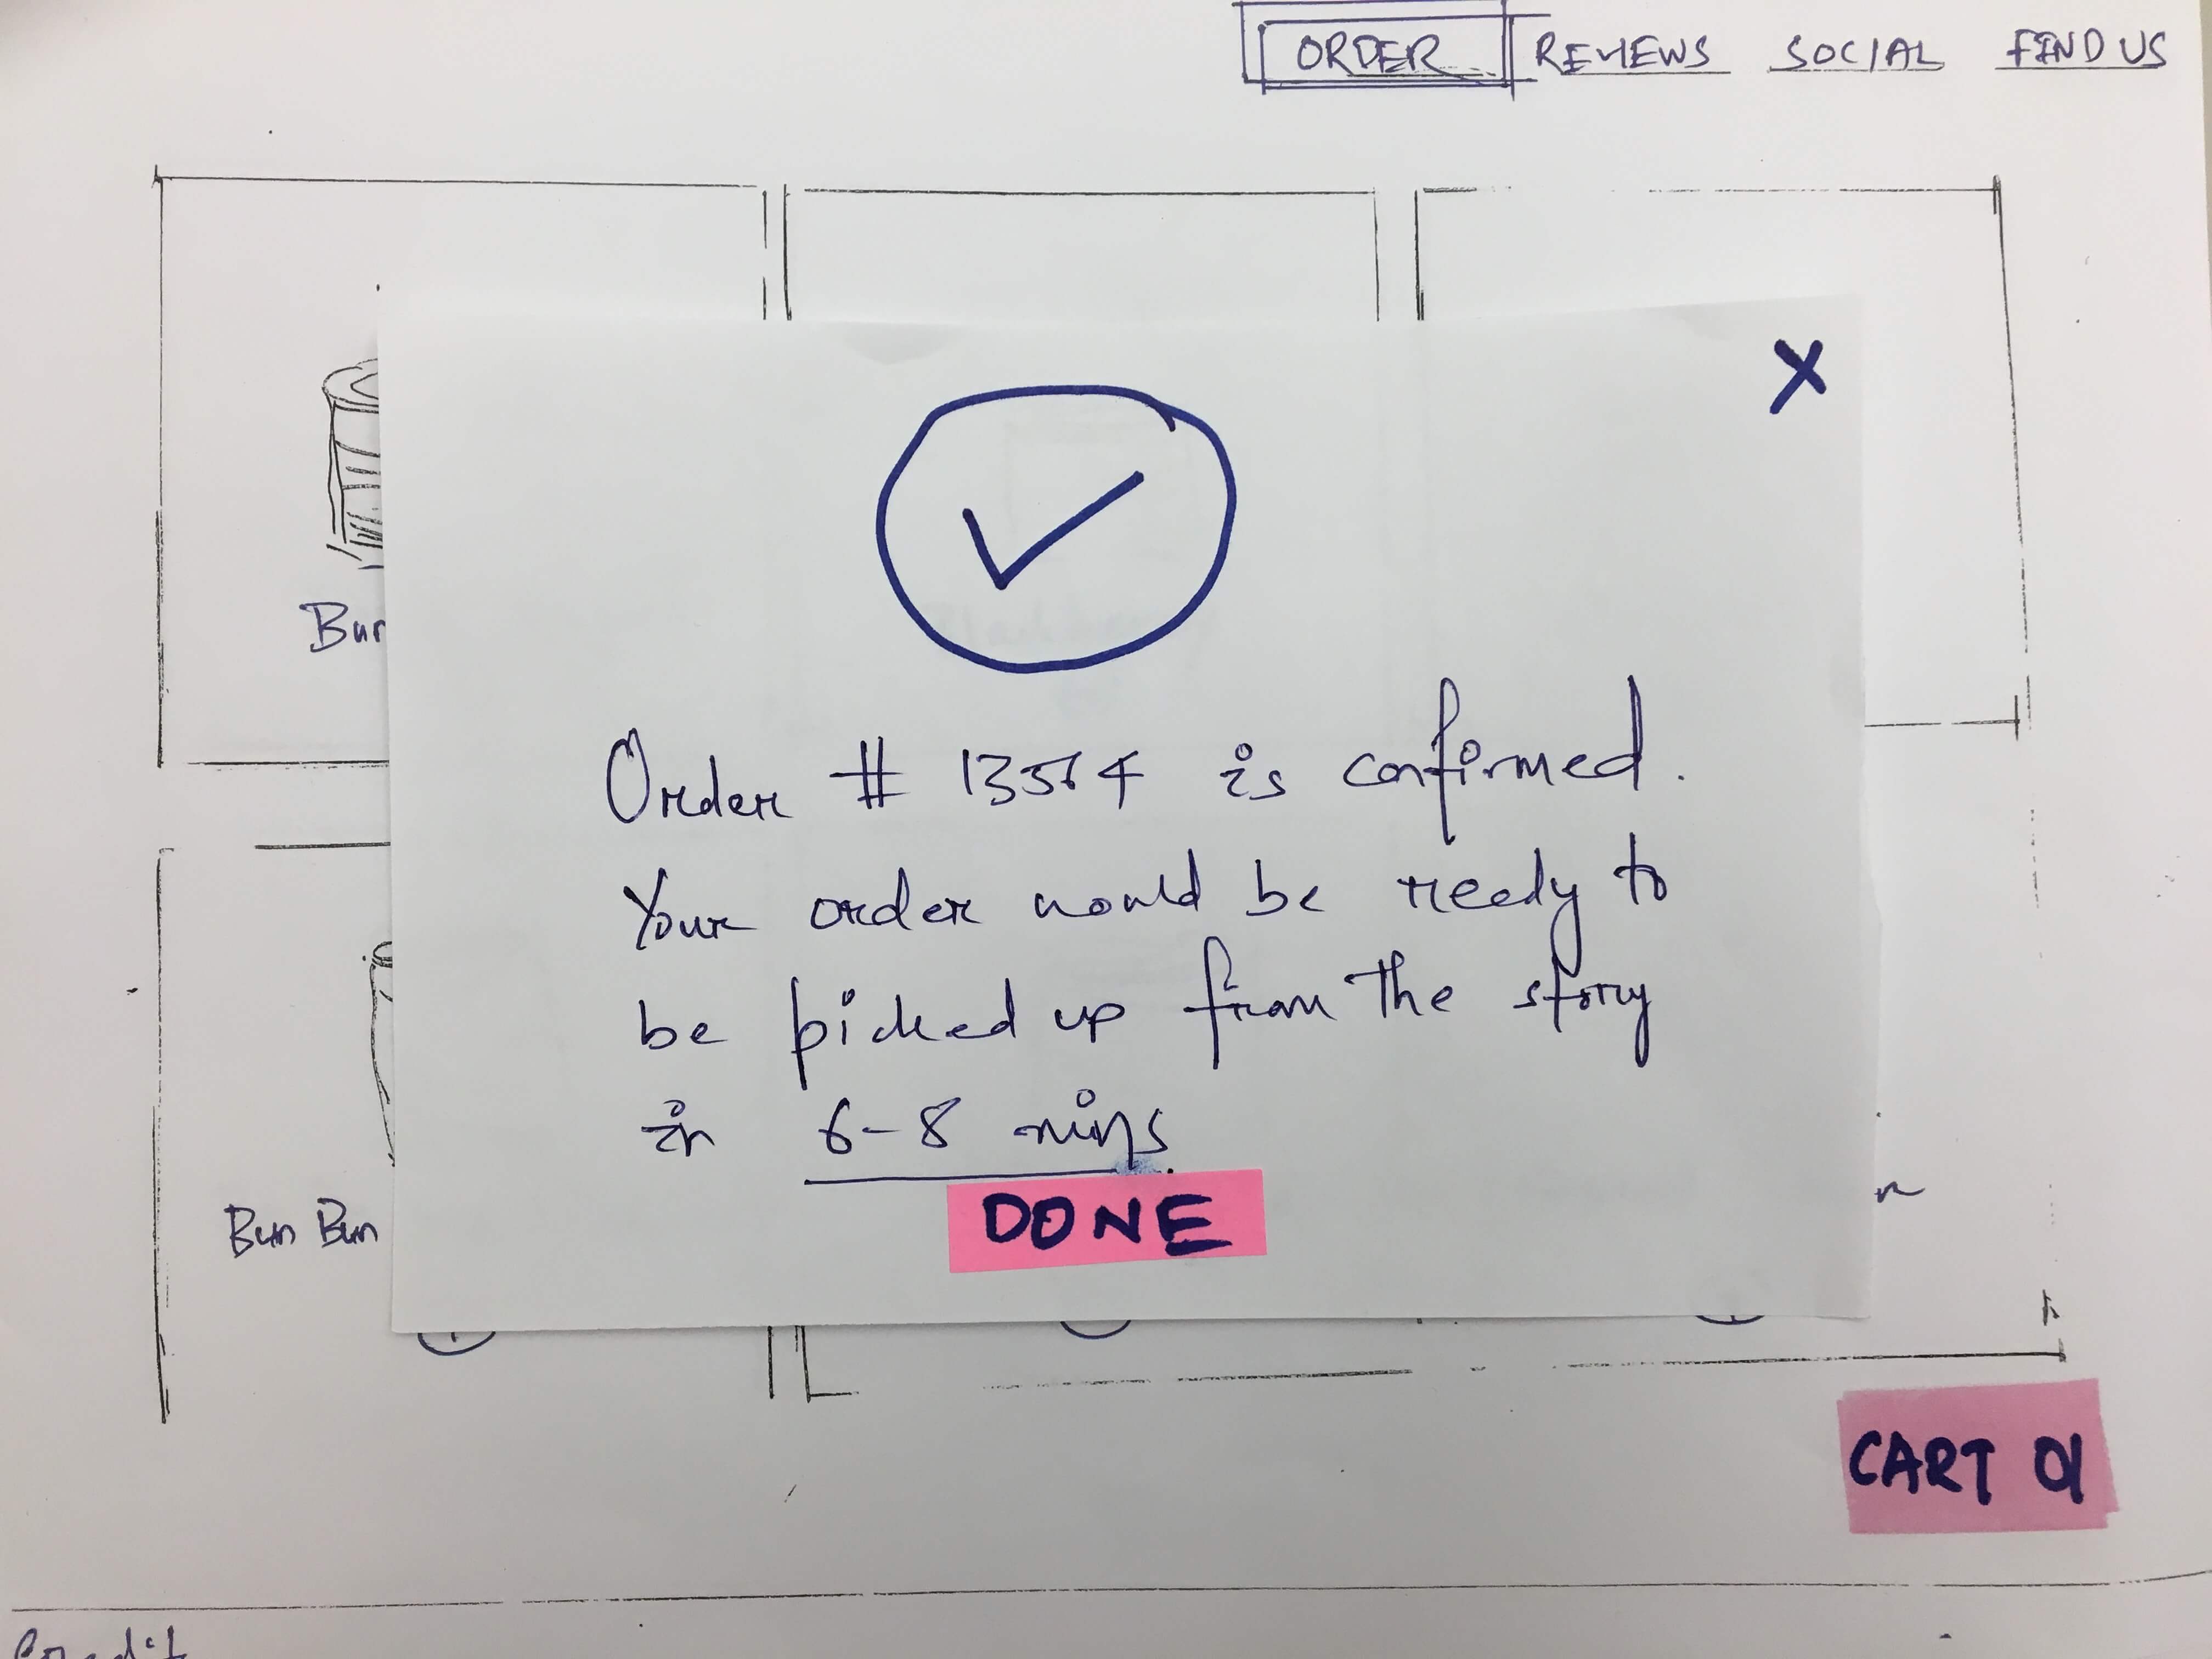 ORDER REVIEWS SOCIAL FIND US
X
Bur
Order # 13564 is confirmed.
Your order would be ready to
be picked up from the story
in 6-8 mins.
Bun Bun
DONE
CART 01
Credit